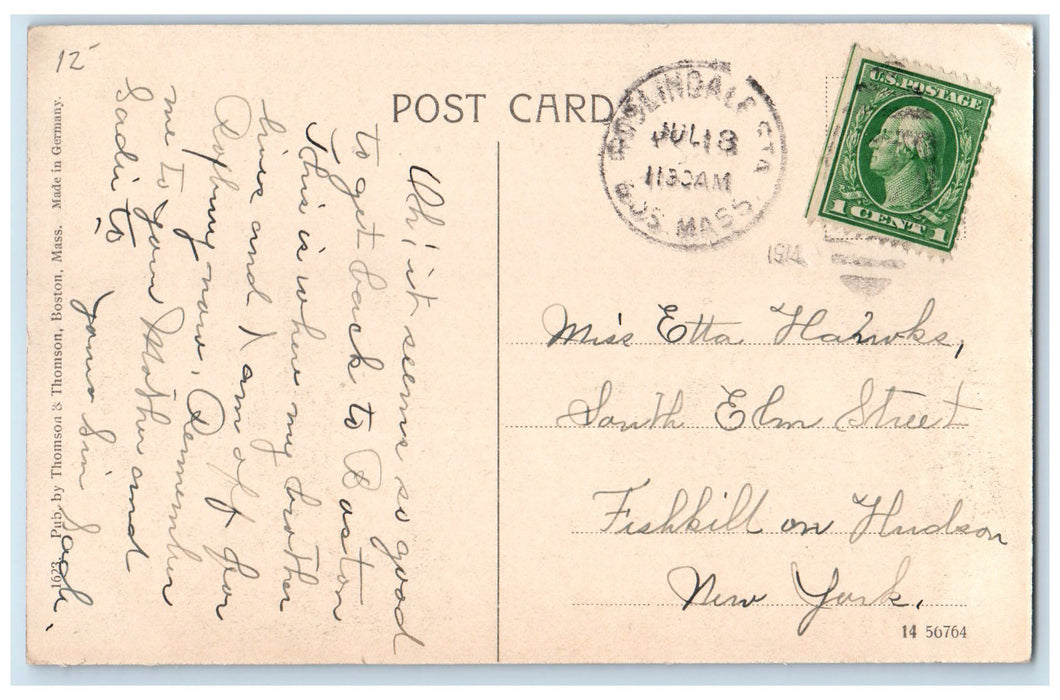 12
POST CARD
ROSLINDALE STA.
JUL 18
1130AM
BOS. MASS.
1914
U.S. POSTAGE
1 CENT 1
Oh! it seems so good
to get back to Boston
This is where my brother
lives and I am off for
now. Remember
me to your Mother and
Sadie, to
Yours Sin
Miss Etta Hawks,
South Elm Street
Fishkill on Hudson
New York.
14 56764
1623 Pub. by Thomson & Thomson, Boston, Mass. Made in Germany.